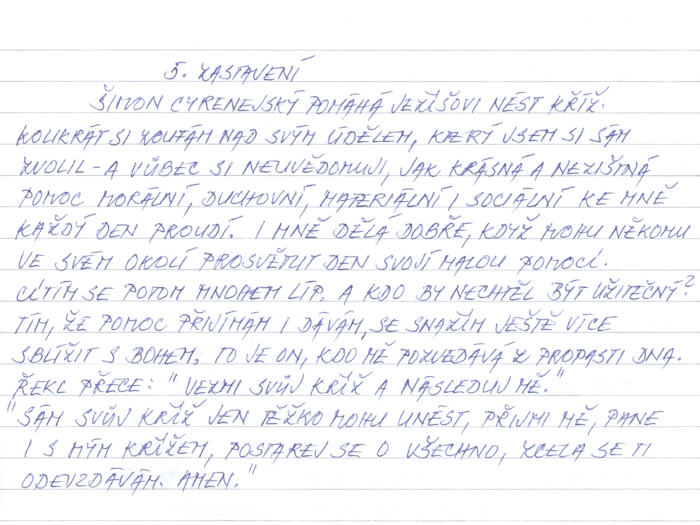 5. ZASTAVENÍ
ŠIMON CYRENEJSKÝ POMÁHÁ JEŽÍŠOVI NÉST KŘÍŽ.
KOLIKRÁT SI ZOUFÁM NAD SVÝM ÚDĚLEM, KTERÝ JSEM SI SÁM
ZVOLIL - A VŮBEC SI NEUVĚDOMUJI, JAK KRÁSNÁ A NEZIŠTNÁ
POMOC MORÁLNÍ, DUCHOVNÍ, MATERIÁLNÍ I SOCIÁLNÍ KE MNĚ
KAŽDÝ DEN PROUDÍ. I MNĚ DĚLÁ DOBŘE, KDYŽ MOHU NĚKOMU
VE SVÉM OKOLÍ PROSVĚTLIT DEN SVOJÍ MALOU POMOCÍ.
CÍTÍM SE POTOM MNOHEM LÍP. A KDO BY NECHTĚL BÝT UŽITEČNÝ?
TÍM, ŽE POMOC PŘIJÍMÁM I DÁVÁM, SE SNAŽÍM JEŠTĚ VÍCE
SBLÍŽIT S BOHEM. TO JE ON, KDO MĚ POZVEDÁVÁ Z PROPASTI DNA.
ŘEKL PŘECE: "VEZMI SVŮJ KŘÍŽ A NÁSLEDUJ MĚ."
"SÁM SVŮJ KŘÍŽ JEN TĚŽKO MOHU UNÉST, PŘIJMI MĚ, PANE
I S MÝM KŘÍŽEM, POSTAREJ SE O VŠECHNO, ZCELA SE TI
ODEVZDÁVÁM. AMEN."